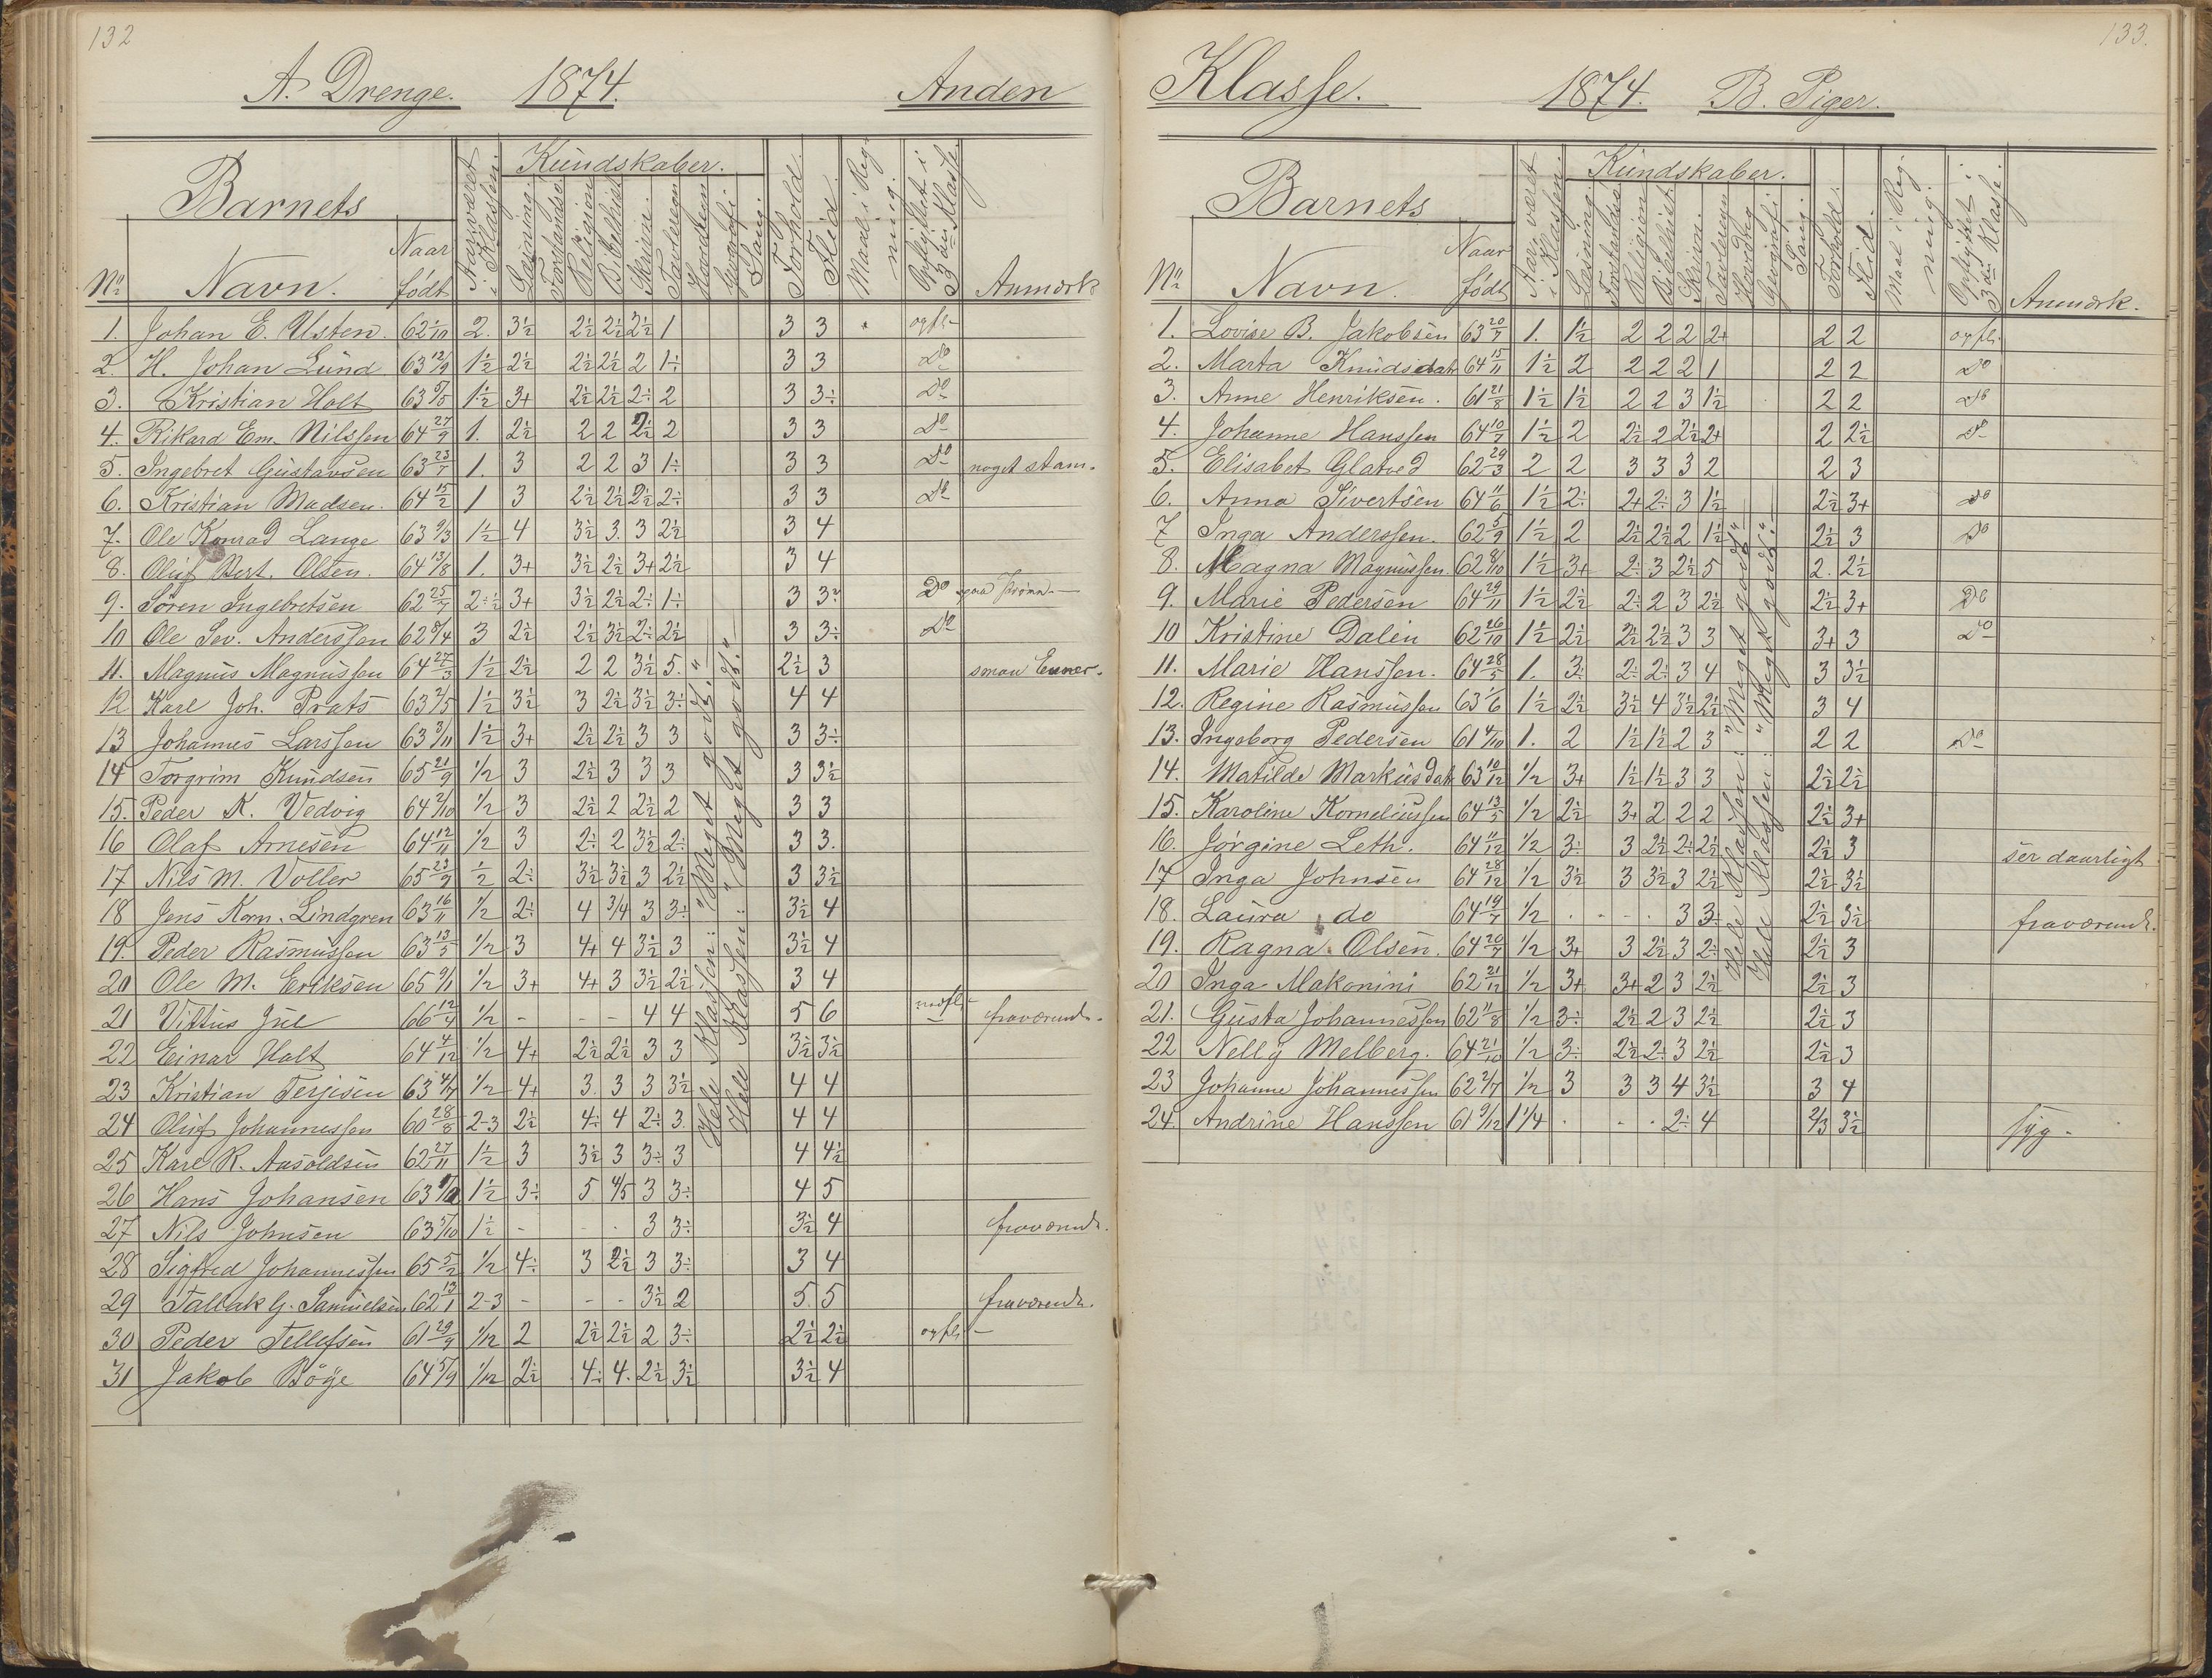 132
A. Drenge. 1874. Anden
Barnets
Kundskaber.
Nº Navn. Naar født Aar været i Klassen. Læsning. Forstands. Religion Bibelhist. Skrivn. Tavleregn Hovedregn Geografi Sang. Forhold. Flid. Maal i Regning. Opflyttet i 3die Klasse Anmærk
1. Johan E. Usten. 2. 3½ 2½ 2½ 2½ 1 3 3 opfl.
2. H. Johan Lund 63 12/9 1½ 2½ 2½ 2½ 2 1÷ 3 3 Do
3. Kristian Holt 1½ 3+ 2½ 2½ 2÷ 2 3 3÷ Do
4. Rikard Em. Nilssen 64 27/9 1. 2½ 2 2 2½ 2 3 3 Do
5. Ingebret Gustavsen 63 23/7 1. 3 2 2 3 1÷ 3 3 Do noget stam.
6. Kristian Madsen. 64 15/2 1 3 2½ 2½ 2½ 2÷ 3 3 Do
7. Ole Konrad Lange 63 9/3 1½ 4 3½ 3. 3 2½ 3 4
8. Oluf Bert. Olsen. 64 13/8 1. 3+ 3½ 2½ 3+ 2½ 3 4
9. Søren Ingebretsen 62 25/7 3+ 3½ 2½ 2÷ 1÷ 3 Do
10 Ole Sev. Anderssen 62 8/4 3 2½ 2½ 3½ 2÷ 2½ 3 3÷ Do
11. Magnus Magnussen 64 27/3 1½ 2½ 2 2 3½ 5. 2½ 3 smaa Evner.
12 Karl Joh. Prats 63 2/5 1½ 3½ 3 2½ 3½ 3÷ 4 4
13 Johannes Larssen 63 3/11 1½ 3+ 2½ 2½ 3 3 3 3÷
14 Torgrim Knudsen 65 21/9 1/2 3 2½ 3 3 3 3 3½
15. Peder K. Vedvig 64 2/10 1/2 3 2½ 2 2½ 2 3 3
16 Olaf Arnesen 64 12/11 1/2 3 2÷ 2 3½ 2÷ 3 3.
17 Nils M. Voller 65 23/9 1/2 2÷ 3½ 3½ 3 2½ 3 3½
18 Jens Korn. Lindgren 63 16/11 1/2 2÷ 4 3/4 3 3÷ 3½ 4
19. Peder Rasmussen 63 13/5 1/2 3 4+ 4 3½ 3 3½ 4
20 Ole M. Eriksen 65 9/1 1/2 3+ 4+ 3 3½ 2½ 3 4
21 Vittus Jul 66 12/4 1/2 - - - 4 4 5 6 nedfl. fraværende.
22 Einar Holt 64 4/12 1/2 4+ 2½ 2½ 3 3 3½ 3½
23 Kristian Terjesen 63 4/7 1/2 4+ 3. 3 3 3½ 4 4
24 Oluf Johannessen 60 28/8 2-3 2½ 4÷ 4 2÷ 3. 4 4
25 Karl R. Aasoldsen 62 27/11 1½ 3 3½ 3 3÷ 3 4 4½
26 Hans Johansen 1½ 3÷ 5 4/5 3 3÷ 4 5
27 Nils Johnsen 63 5/10 1½ - - - 3 3÷ 3½ 4 fraværende.
28 Sigfred Johannessen 65 5/2 1/2 4÷ 3 2½ 3 3÷ 3 4
29 Tallak G. Samuelsen 62 13/1 2-3 - - - 3½ 2 5. 5 fraværende.
30 Peder Tellefsen 61 29/9 1/12 2 2½ 2½ 2 3÷ 2½ 2½ opfl.
31 Jakob Bøye 64 5/9 1/12 2½ 4÷ 4. 2½ 3½ 3½ 4
Hele Klassen: "Meget godt."
Hele Klassen: "Meget godt."
133.
Klasse. 1874. B. Piger.
Barnets
Kundskaber.
Nº Navn. Naar født Aar været i Klassen. Læsning. Forstands. Religion. Bibelhist. Skrivn. Tavleregn Hovedrg Geografi. Sang. Forhold. Flid. Maal i Regning. Opflyttet i 3die Klasse. Anmærk.
1. Lovise B. Jakobsen 63 20/7 1. 1½ 2 2 2 2+ 2 2 opfl.
2. Marta Knudsdat 64 15/11 1½ 2 2 2 2 1 2 2 Do
3. Anne Henriksen. 61 21/8 1½ 1½ 2 2 3 1½ 2 2 Do
4. Johanne Hanssen 64 10/7 1½ 2 2½ 2 2½ 2+ 2 2½ Do
5. Elisabet Glatved 62 29/3 2 2 3 3 3 2 2 3
6. Anna Sivertsen 64 11/6 1½ 2÷ 2+ 2÷ 3 1½ 2½ 3+ Do
7 Inga Anderssen. 62 5/9 1½ 2 2½ 2½ 2 1½ 2½ 3 Do
8. Magna Magnussen. 62 8/10 1½ 3+ 2÷ 3 2½ 5 2. 2½
9. Marie Pedersen 64 29/11 1½ 2½ 2÷ 2 3 2½ 2½ 3+ Do
10 Kristine Dalen 62 26/10 1½ 2½ 2½ 2½ 3 3 3+ 3 Do
11. Marie Hanssen. 64 28/5 1. 3÷ 2÷ 2÷ 3 4 3 3½
12. Regine Rasmussen 63 1/6 1½ 2½ 3½ 4 3½ 2½ 3 4
13. Ingeborg Pedersen 61 4/10 1. 2 1½ 1½ 2 3 2 2 Do
14. Matilde Markusdat 63 10/12 1/2 3+ 1½ 1½ 3 3 2½ 2½
15. Karoline Korneliussen 64 13/5 1/2 2½ 3+ 2 2 2 2½ 3+
16. Jørgine Leth. 64 11/12 1/2 3÷ 3 2½ 2÷ 2½ 2½ 3 ser daarligt
17 Inga Johnsen 64 28/12 1/2 3½ 3 3½ 3 2½ 2½ 3½
18. Laura do 64 19/7 1/2 . . . . 3 3÷ 2½ 3½ fraværende.
19. Ragna Olsen. 64 20/7 1/2 3+ 3 2½ 3 2÷ 2½ 3
20 Inga Makonini 62 21/12 1/2 3+ 3+ 2 3 2½ 2½ 3
21. Gusta Johannessen 62 11/8 1/2 3÷ 2½ 2 3 2½ 2½ 3
22 Nelly Melberg. 64 21/10 1/2 3÷ 2½ 2÷ 3 2½ 2½ 3
23 Johanne Johannessen 62 2/7 1/2 3 3 3 4 3½ 3 4
24. Andrine Hanssen 61 9/12 1 1/4 . . . 2÷ 4 2/3 3½ syg.
Hele Klassen: "Meget godt."
Hele Klassen: "Meget godt."